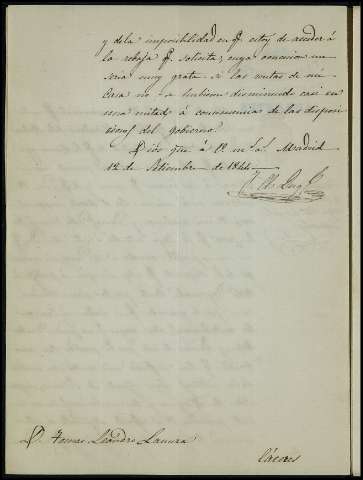 y de la imposibilidad en q.e estoy de acceder á
la rebaja q.e solicita, cuya concesion me
seria muy grata si las rentas de mi
Casa no se hubieran disminuido casi en
una mitad á consecuencia de las disposi
ciones del gobierno.
Dios gue á V m.s a.s Madrid
12 de Setiembre de 1844.
D. Tomas Leandro
Cáceres